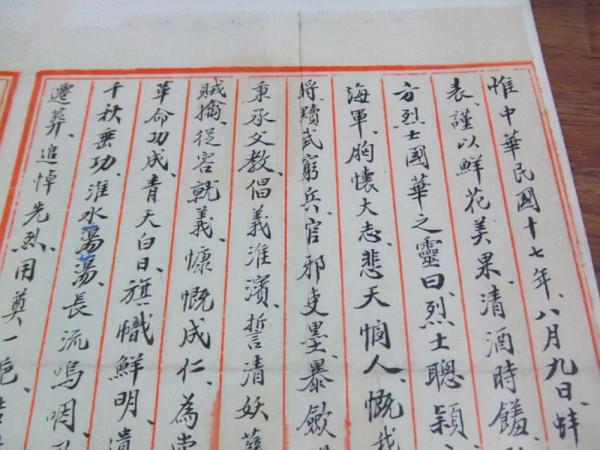 惟中華民國十七年、八月九日、蚌
表、謹以鮮花美果、清酒時饈、
方烈士國華之靈曰、烈士聰穎、
海軍、胸懷大志、悲天憫人、慨我
將、黷武窮兵、官邪吏墨、暴斂
秉承父教、倡義淮濱、誓清妖
賊擒、從容就義、慷慨成仁、為
革命功成、青天白日、旗幟鮮明、遺
千秋垂功、淮水湯湯、長流嗚咽、
遷葬、追悼先烈、用奠一